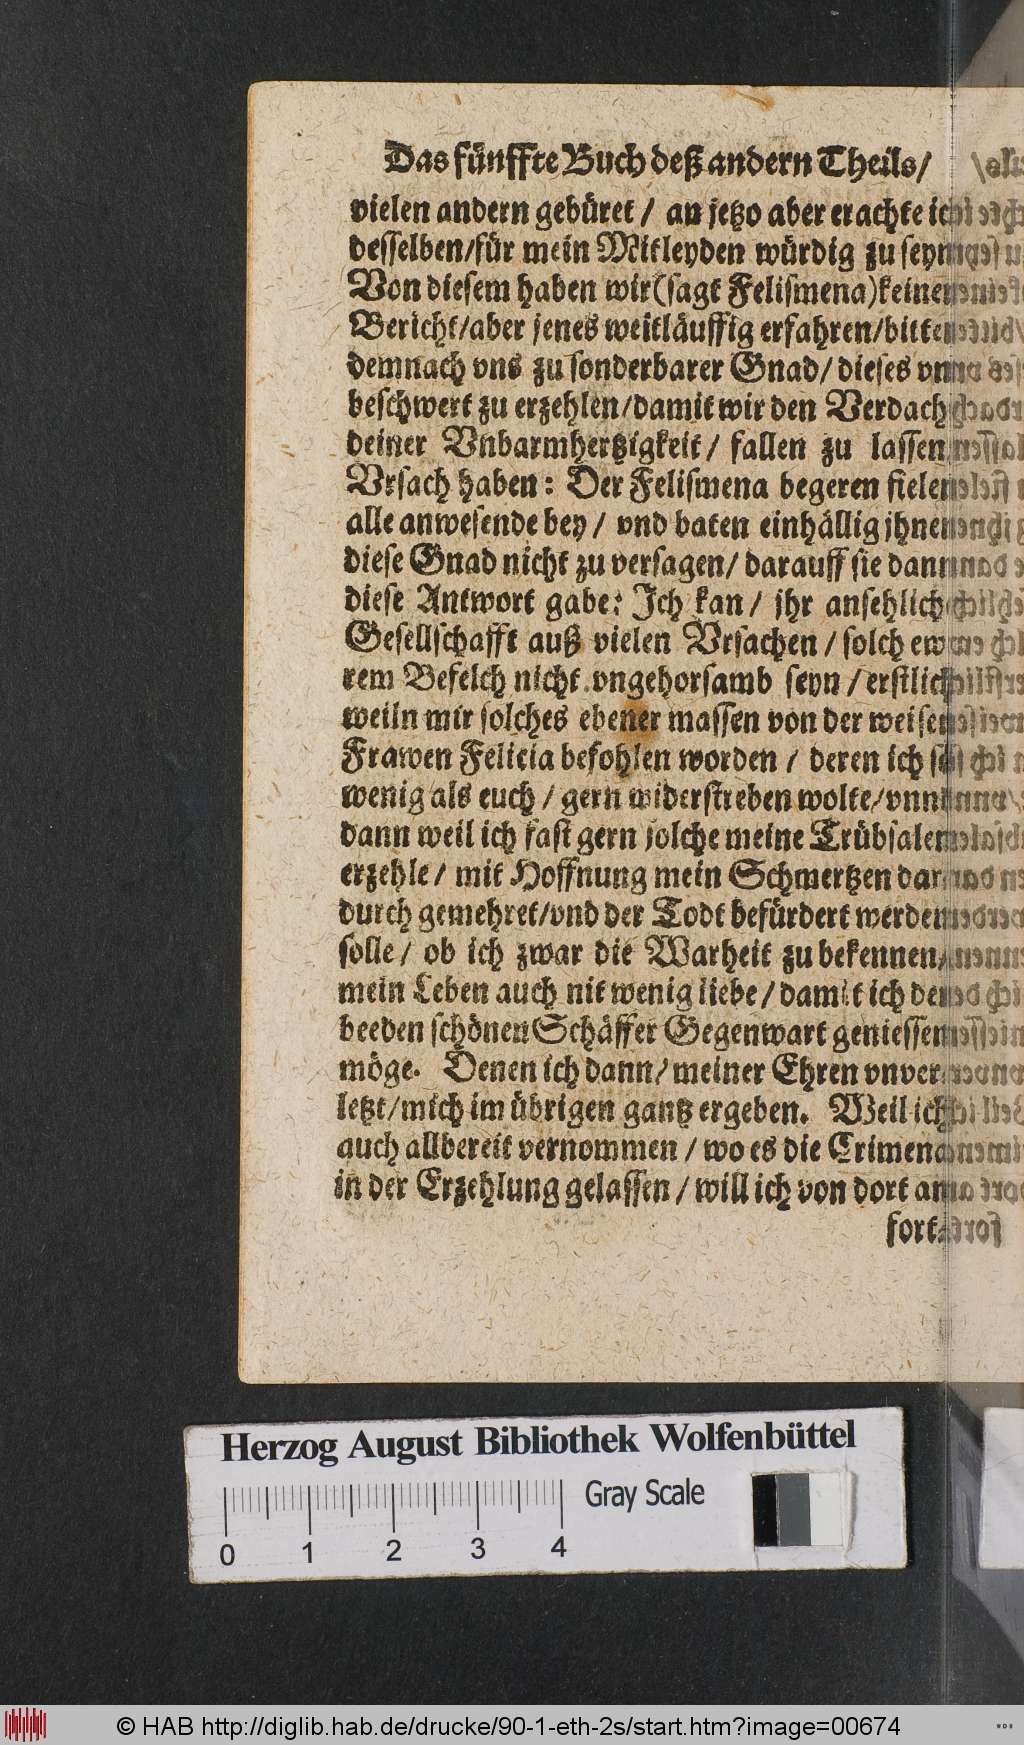 Das fünffte Buch deß andern Theils/
vielen andern gebüret / an jetzo aber erachte ich
desselben/für mein Mitleyden würdig zu seyn
Von diesem haben wir (sagt Felismena) keinen
Bericht/aber jenes weitläuffig erfahren/bitten
demnach vns zu sonderbarer Gnad/ dieses vn-
beschwert zu erzehlen/damit wir den Verdacht
deiner Vnbarmhertzigkeit/ fallen zu lassen
Vrsach haben: Der Felismena begeren fielen
alle anwesende bey / vnd baten einhällig jhnen
diese Gnad nicht zu versagen/ darauff sie dann
diese Antwort gabe: Ich kan / jhr ansehlich
Gesellschafft auß vielen Vrsachen / solch ew
rem Befelch nicht vngehorsamb seyn / erstlich
weiln mir solches ebener massen von der weisen
Frawen Felicia befohlen worden / deren ich so
wenig als euch / gern widerstreben wolte/vnn
dann weil ich fast gern solche meine Trübsalen
erzehle / mit Hoffnung mein Schmertzen dar
durch gemehret/vnd der Todt befürdert werden
solle / ob ich zwar die Warheit zu bekennen/
mein Leben auch nit wenig liebe / damit ich der
beeden schönen Schäffer Gegenwart geniessen
möge. Denen ich dann/ meiner Ehren vnver
letzt/mich im übrigen gantz ergeben. Weil ich
auch allbereit vernommen / wo es die Crimena
in der Erzehlung gelassen / will ich von dort an
fort
Herzog August Bibliothek Wolfenbüttel
Gray Scale
0 1 2 3 4
© HAB http://diglib.hab.de/drucke/90-1-eth-2s/start.htm?image=00674